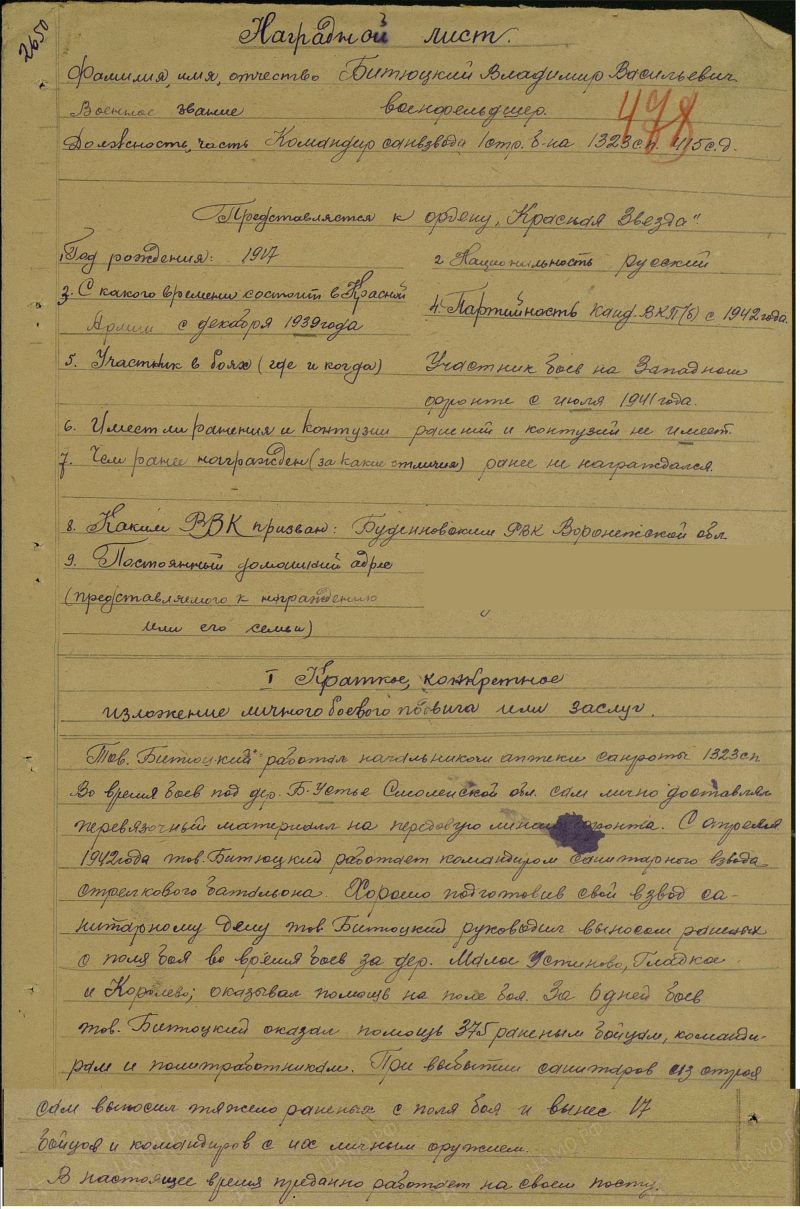 2650
Наградной лист.
Фамилия, имя, отчество Битюцкий Владимир Васильевич
Военное звание военфельдшер.
478
Должность, часть Командир санвзвода 1стр. б-на 1323сп. 415с.д.
Представляется к ордену „Красная Звезда"
1. Год рождения: 1917 2 Национальность русский
3. С какого времени состоит в Красной
Армии с декабря 1939 года
4. Партийность канд. ВКП(б) с 1942 года.
5. Участник в боях (где и когда) Участник боев на Западном
фронте с июля 1941 года.
6. Имеет ли ранения и контузии ранений и контузий не имеет.
7. Чем ранее награжден (за какие отличия) ранее не награждался.
8. Каким РВК призван: Буденновским РВК Воронежской обл
9. Постоянный домашний адрес
(представляемого к награждению
или его семьи)
I Краткое, конкретное
изложение личного боевого подвига или заслуг.
Тов. Битюцкий работал начальником аптеки санроты 1323сп
Во время боев под дер. Б-Устье Смоленской обл. сам лично доставлял
перевязочный материалл на передовую линию фронта. С апреля
1942 года тов. Битюцкий работает командиром санитарного взвода
стрелкового батальона. Хорошо подготовив свой взвод са-
нитарному делу тов Битюцкий руководил выносом раненых
с поля боя во время боев за дер. Малое Устиново, Гладкое
и Королево; оказывал помощь на поле боя. За 6 дней боев
тов. Битюцкий оказал помощь 375 раненым бойцам, команди-
рам и политработникам. При выбытии санитаров из строя
сам выносил тяжело раненых с поля боя и вынес 17
бойцов и командиров с их личным оружием.
В настоящее время преданно работает на своем посту.